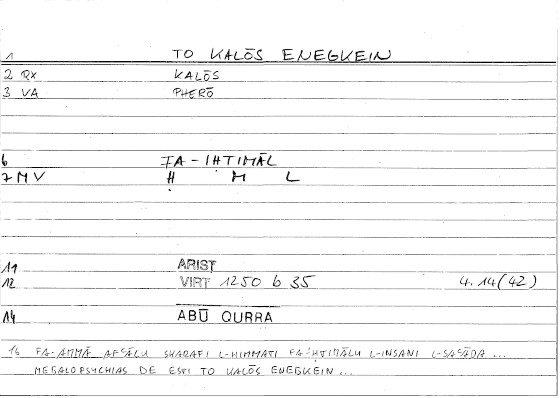 1 TO KALŌS ENEGKEIN
2 RX KALŌS
3 VA PHERŌ
6 FA-IḤTIMĀL
7 MV Ḥ M L
11 ARIST
12 VIRT 1250 b 35 4.14(42)
14 ABŪ QURRA
16 FA-AMMĀ AFʿĀLU SHARAFI L-HIMMATI FA-ḤTIMĀLU L-INSANI L-SAʿĀDA ...
MEGALOPSYCHIAS DE ESTI TO KALŌS ENEGKEIN ...